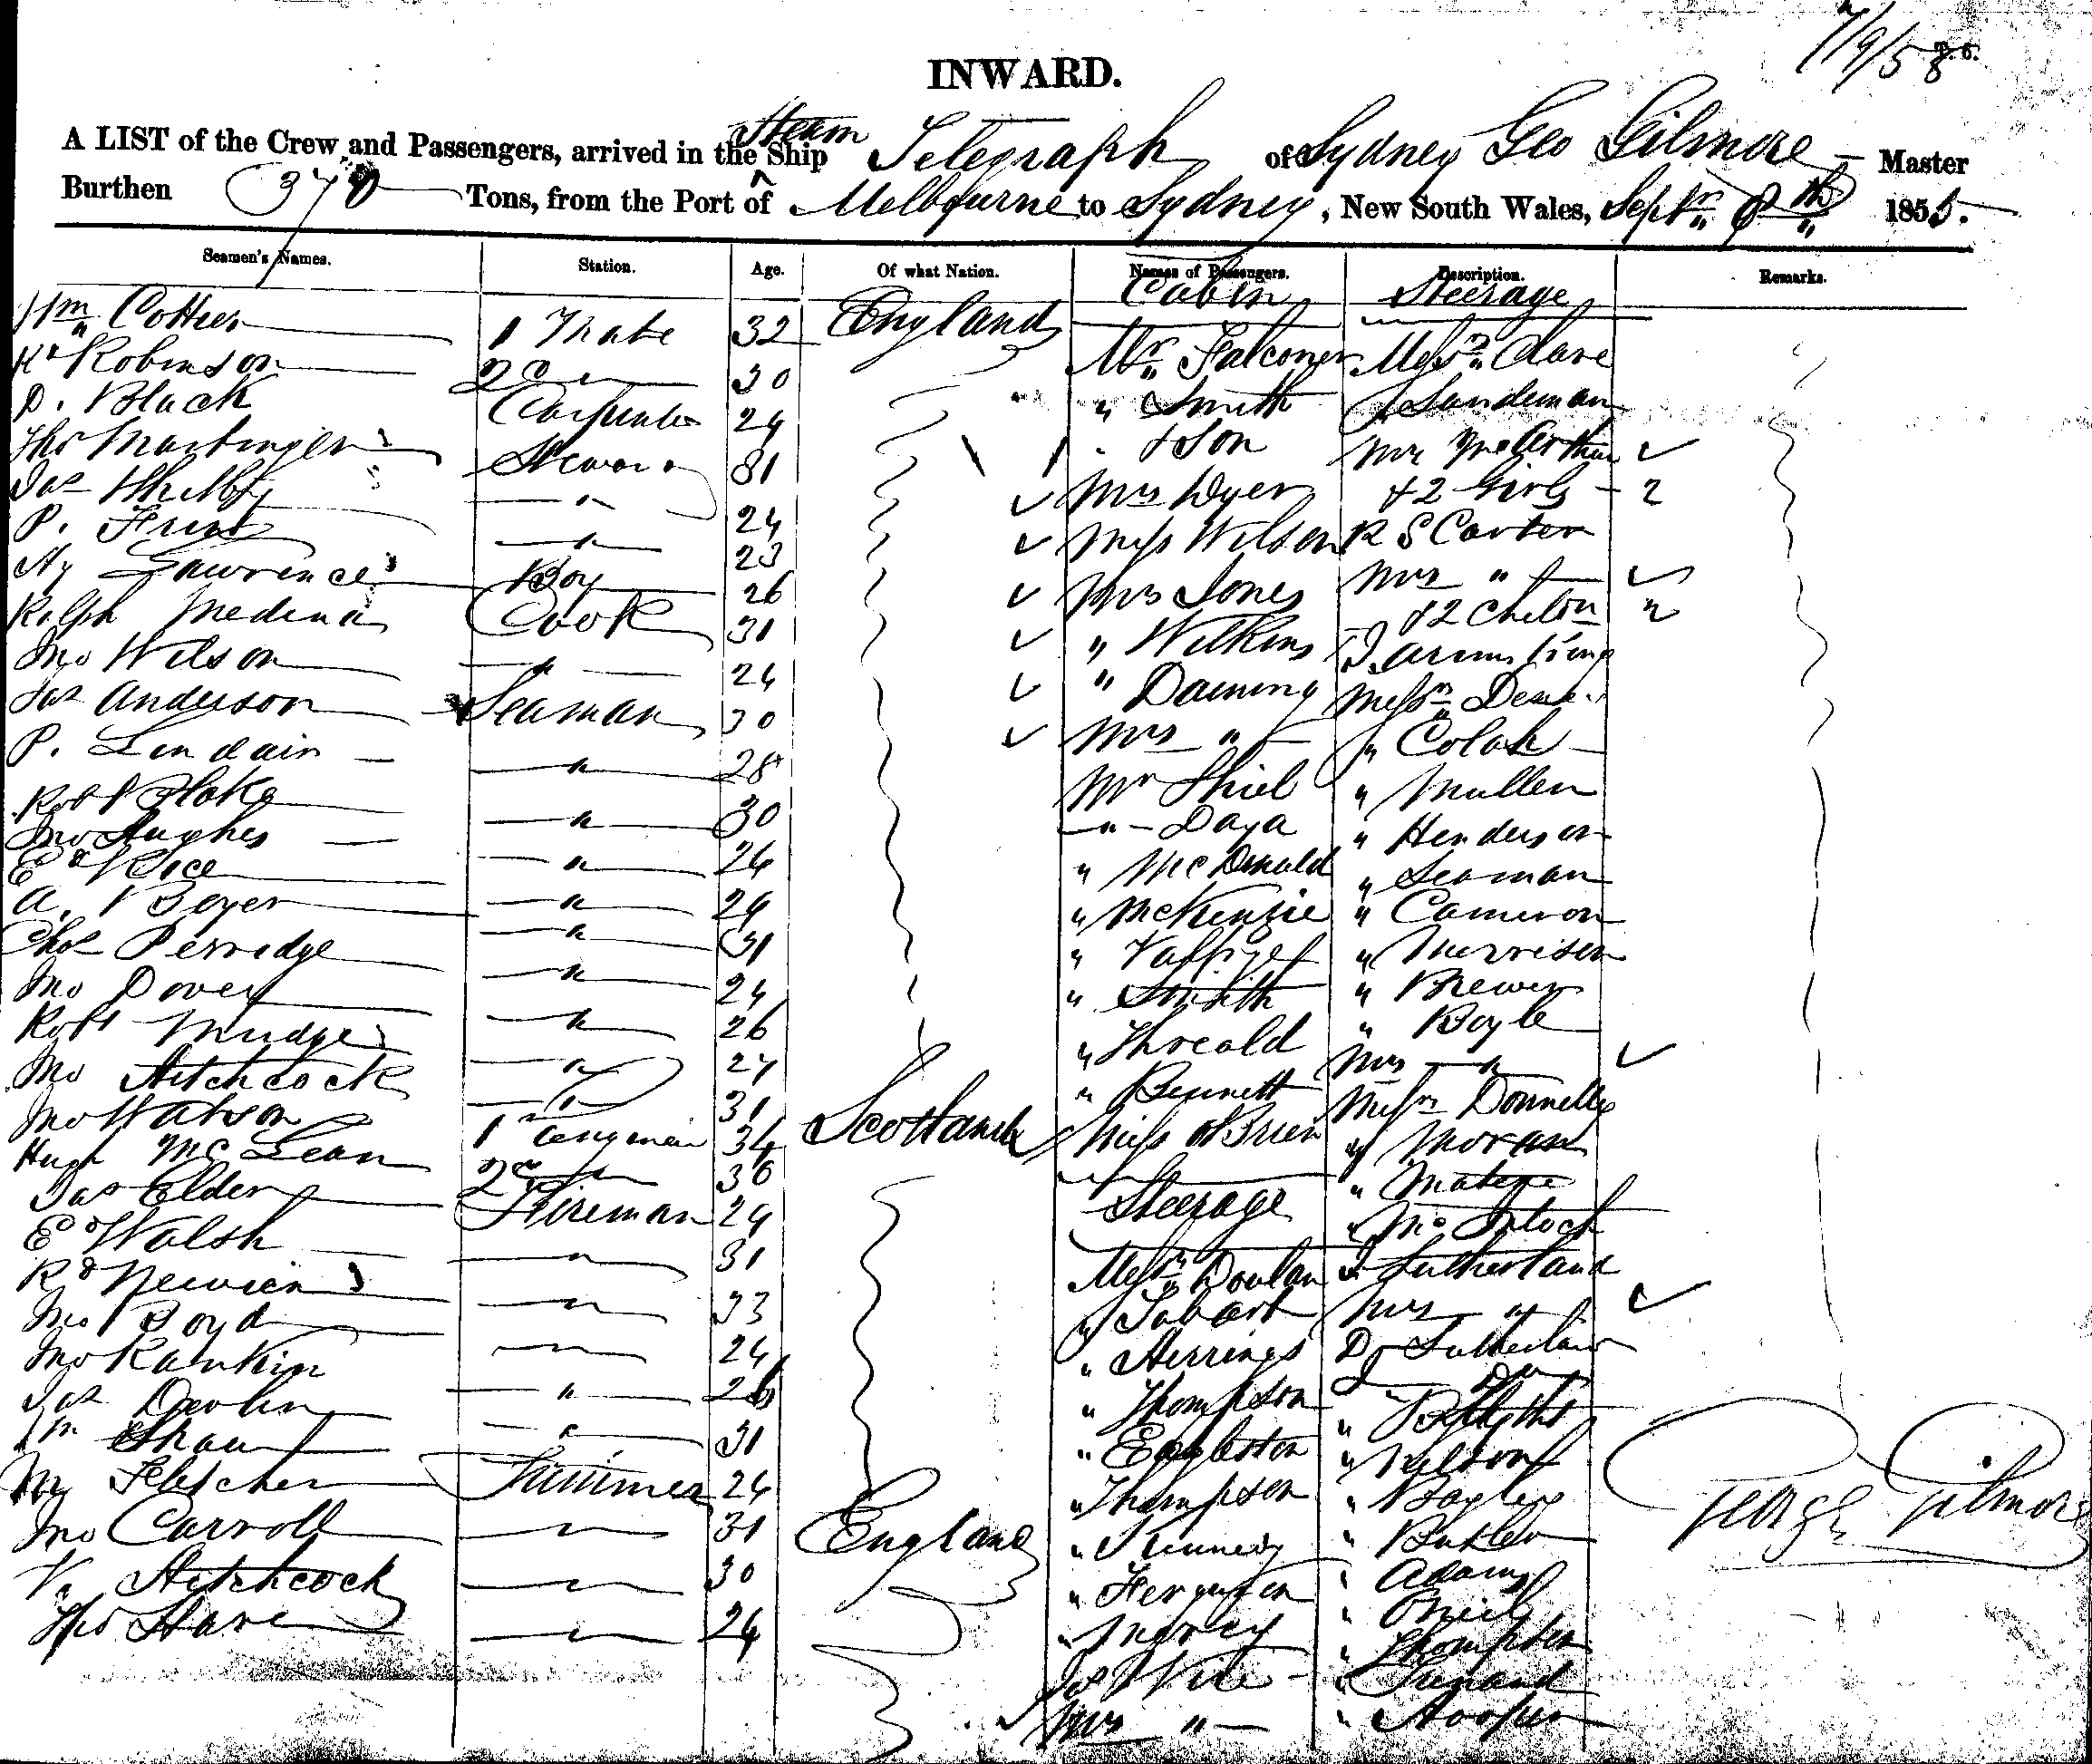 7/9/58
INWARD.
A LIST of the Crew and Passengers, arrived in the Steam Ship Telegraph of Sydney Geo Gilmore Master
Burthen 370 Tons, from the Port of Melbourne to Sydney, New South Wales, Septr 8th 1855.
Seamen's Names. Station. Age. Of what Nation. Names of Passengers. Description. Remarks.
Cabin Steerage
Wm Cottier 1 Mate 32 England Mr Falconer Messrs Clare
Rd Robinson 2 " 30 " Smith " Sandeman
D. Black Carpenter 24 " & Son Mrs McArthur
Thos Steward 31 Mrs Dyer & 2 Girls - 2
Jas " 24 Miss Wilson R S Carter
P. " 23 Mrs Jones Mrs "
Hy Lawrence Boy 26 " Wilkins & 2 Children 2
Ralph Medina Cook 31 " Armstrong
Jno Wilson " 24 " Messrs
Jas Anderson Seaman 30 Mrs " "
P. " 28 Mr Shiel " Mullen
Robt Blake " 30 " Daya " Henderson
Jno Hughes " 24 " McDonald " Seaman
Ed Rice " 24 " McKenzie " Cameron
A. Boyer " 31 " " Morrison
Chas Perridge " 24 " Smith " Brewer
Jno Dovey " 26 " Threald " Boyle
Robt Mudge " 27 " Bennett Mrs "
Jno Hitchcock " 31 Miss O'Brien Messrs Donnelly
Jno Watson 1 Engineer 34 Scotland " Moran
Hugh McLean 2nd " 36 Steerage "
Jas Elder Fireman 29 "
Ed Walsh " 31 Messrs Doolan " Sutherland
Rd " 33 " Mrs "
Jno Boyd " 24 " Herrings D Sutherland
Jno Rankin " 26 " Thompson "
Jas Devlin " 31 " Eagleston " Nelson
Shaw Trimmer 24 " Thompson " Bayley
Fletcher " 31 England " Kennedy " Butler
Jno Carroll " 30 " Ferguson " Adams
Hitchcock " 24 " " Oneil
Thos Hare " Thompson
Jas "
Mrs " " Hooper
George Gilmore